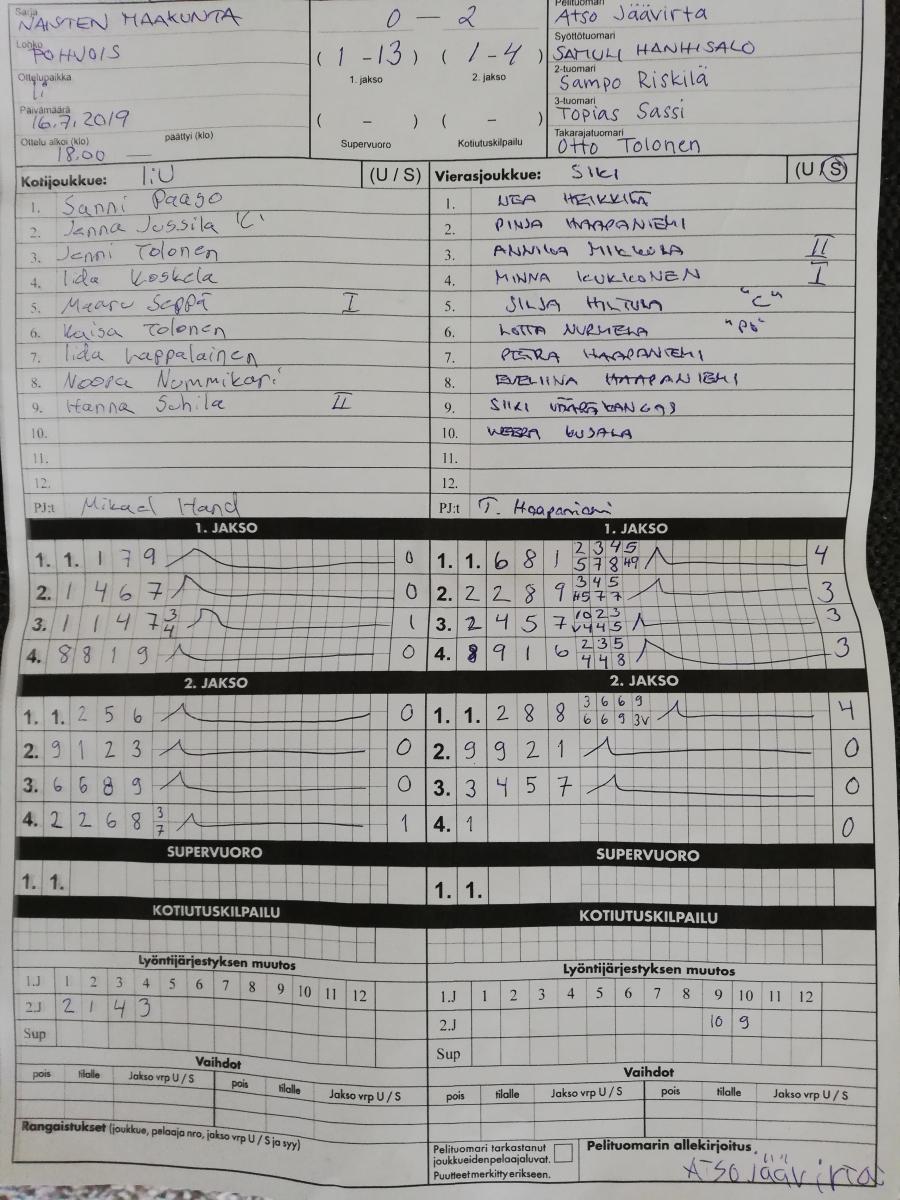 Sarja
NAISTEN MAAKUNTA
Lohko
POHJOIS
Ottelupaikka
Ii
Päivämäärä
16.7.2019
Ottelu alkoi (klo) päättyi (klo)
18.00 —
0 – 2
(1 - 13) (1 - 4)
1. jakso 2. jakso
( – ) ( – )
Supervuoro Kotiutuskilpailu
Pelituomari
Atso Jäävirta
Syöttötuomari
SAMULI HANHISALO
2-tuomari
Sampo Riskilä
3-tuomari
Topias Sassi
Takarajatuomari
Otto Tolonen
Kotijoukkue: IiU (U / S)
1. Sanni Paaso
2. Janna Jussila "C"
3. Jenni Tolonen
4. Iida Koskela
5. Maaru Seppä I
6. Kaisa Tolonen
7. Iida Lappalainen
8. Noora Nummikari
9. Hanna Suhila II
10.
11.
12.
PJ:t Mikael Hand
Vierasjoukkue: SIKI (U / S)
1. NEA HEIKKILÄ
2. PINJA HAAPANIEMI
3. ANNIKA MIKKOLA II
4. MINNA KUKKONEN I
5. SILJA HILTULA "C"
6. LOTTA NURMELA
7. PETRA HAAPANIEMI
8. EVELIINA HAAPANIEMI
9. SIIRI VÄÄRÄKANGAS
10. WEERA KUJALA
11.
12.
PJ:t T. Haapaniemi
1. JAKSO
1. 1. 1 7 9 0
2. 1 4 6 7 0
3. 1 1 4 7 3 4 1
4. 8 8 1 9 0
2. JAKSO
1. 1. 2 5 6 0
2. 9 1 2 3 0
3. 6 6 8 9 0
4. 2 2 6 8 3 7 1
SUPERVUORO
1. 1.
KOTIUTUSKILPAILU
Lyöntijärjestyksen muutos
1.J 1 2 3 4 5 6 7 8 9 10 11 12
2.J 2 1 4 3
Sup
Vaihdot
pois tilalle Jakso vrp U / S pois tilalle Jakso vrp U / S
Rangaistukset (joukkue, pelaaja nro, jakso vrp U / S ja syy)
1. JAKSO
1. 1. 6 8 1 2 3 4 5 4
5 7 8
2. 2 2 8 9 3 4 5 3
7 7
3. 2 4 5 7 10 2 3 3
4 4 5
4. 8 9 1 6 2 3 5 3
4 4 8
2. JAKSO
1. 1. 2 8 8 3 6 6 9 4
6 6 9 3V
2. 9 9 2 1 0
3. 3 4 5 7 0
4. 1 0
SUPERVUORO
1. 1.
KOTIUTUSKILPAILU
Lyöntijärjestyksen muutos
1.J 1 2 3 4 5 6 7 8 9 10 11 12
2.J 10 9
Sup
Vaihdot
pois tilalle Jakso vrp U / S pois tilalle Jakso vrp U / S
Pelituomari tarkastanut
joukkueiden pelaajaluvat.
Puutteet merkitty erikseen.
Pelituomarin allekirjoitus
Atso Jäävirta